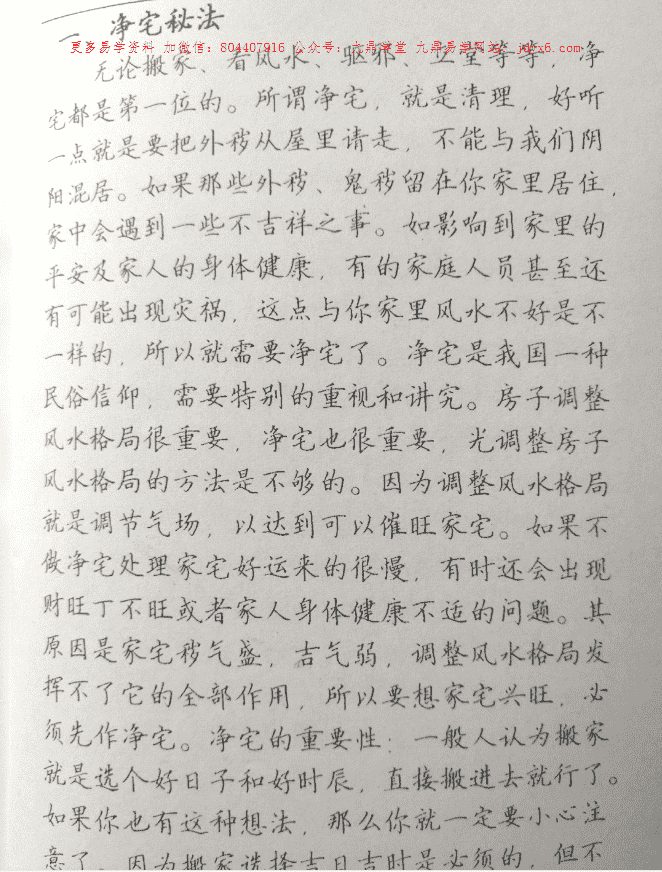 一 净宅秘法
更多易学资料 加微信：804407916 公众号：九鼎学堂 九鼎易学网站：jdyx6.com
无论搬家、看风水、驱邪、立堂等等，净
宅都是第一位的。所谓净宅，就是清理，好听
一点就是要把外秽从屋里请走，不能与我们阴
阳混居。如果那些外秽、鬼秽留在你家里居住，
家中会遇到一些不吉祥之事。如影响到家里的
平安及家人的身体健康，有的家庭人员甚至还
有可能出现灾祸，这点与你家里风水不好是不
一样的，所以就需要净宅了。净宅是我国一种
民俗信仰，需要特别的重视和讲究。房子调整
风水格局很重要，净宅也很重要，光调整房子
风水格局的方法是不够的。因为调整风水格局
就是调节气场，以达到可以催旺家宅。如果不
做净宅处理家宅好运来的很慢，有时还会出现
财旺丁不旺或者家人身体健康不适的问题。其
原因是家宅秽气盛，吉气弱，调整风水格局发
挥不了它的全部作用，所以要想家宅兴旺，必
须先作净宅。净宅的重要性：一般人认为搬家
就是选个好日子和好时辰，直接搬进去就行了。
如果你也有这种想法，那么你就一定要小心注
意了，因为搬家选择吉日吉时是必须的，但不